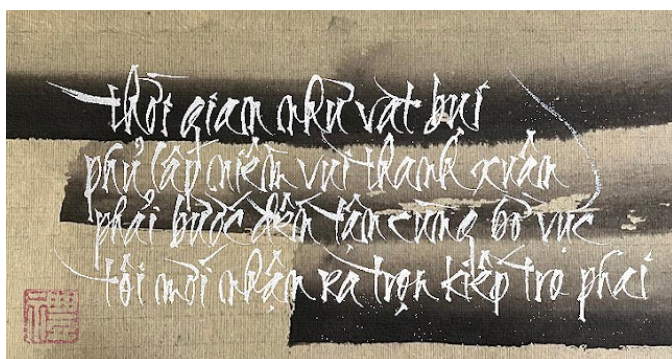 thời gian như vạt bụi
phủ lấp niềm vui thanh xuân
phải bước đến tận cùng bờ vực
tôi mới nhận ra trọn kiếp tro phai